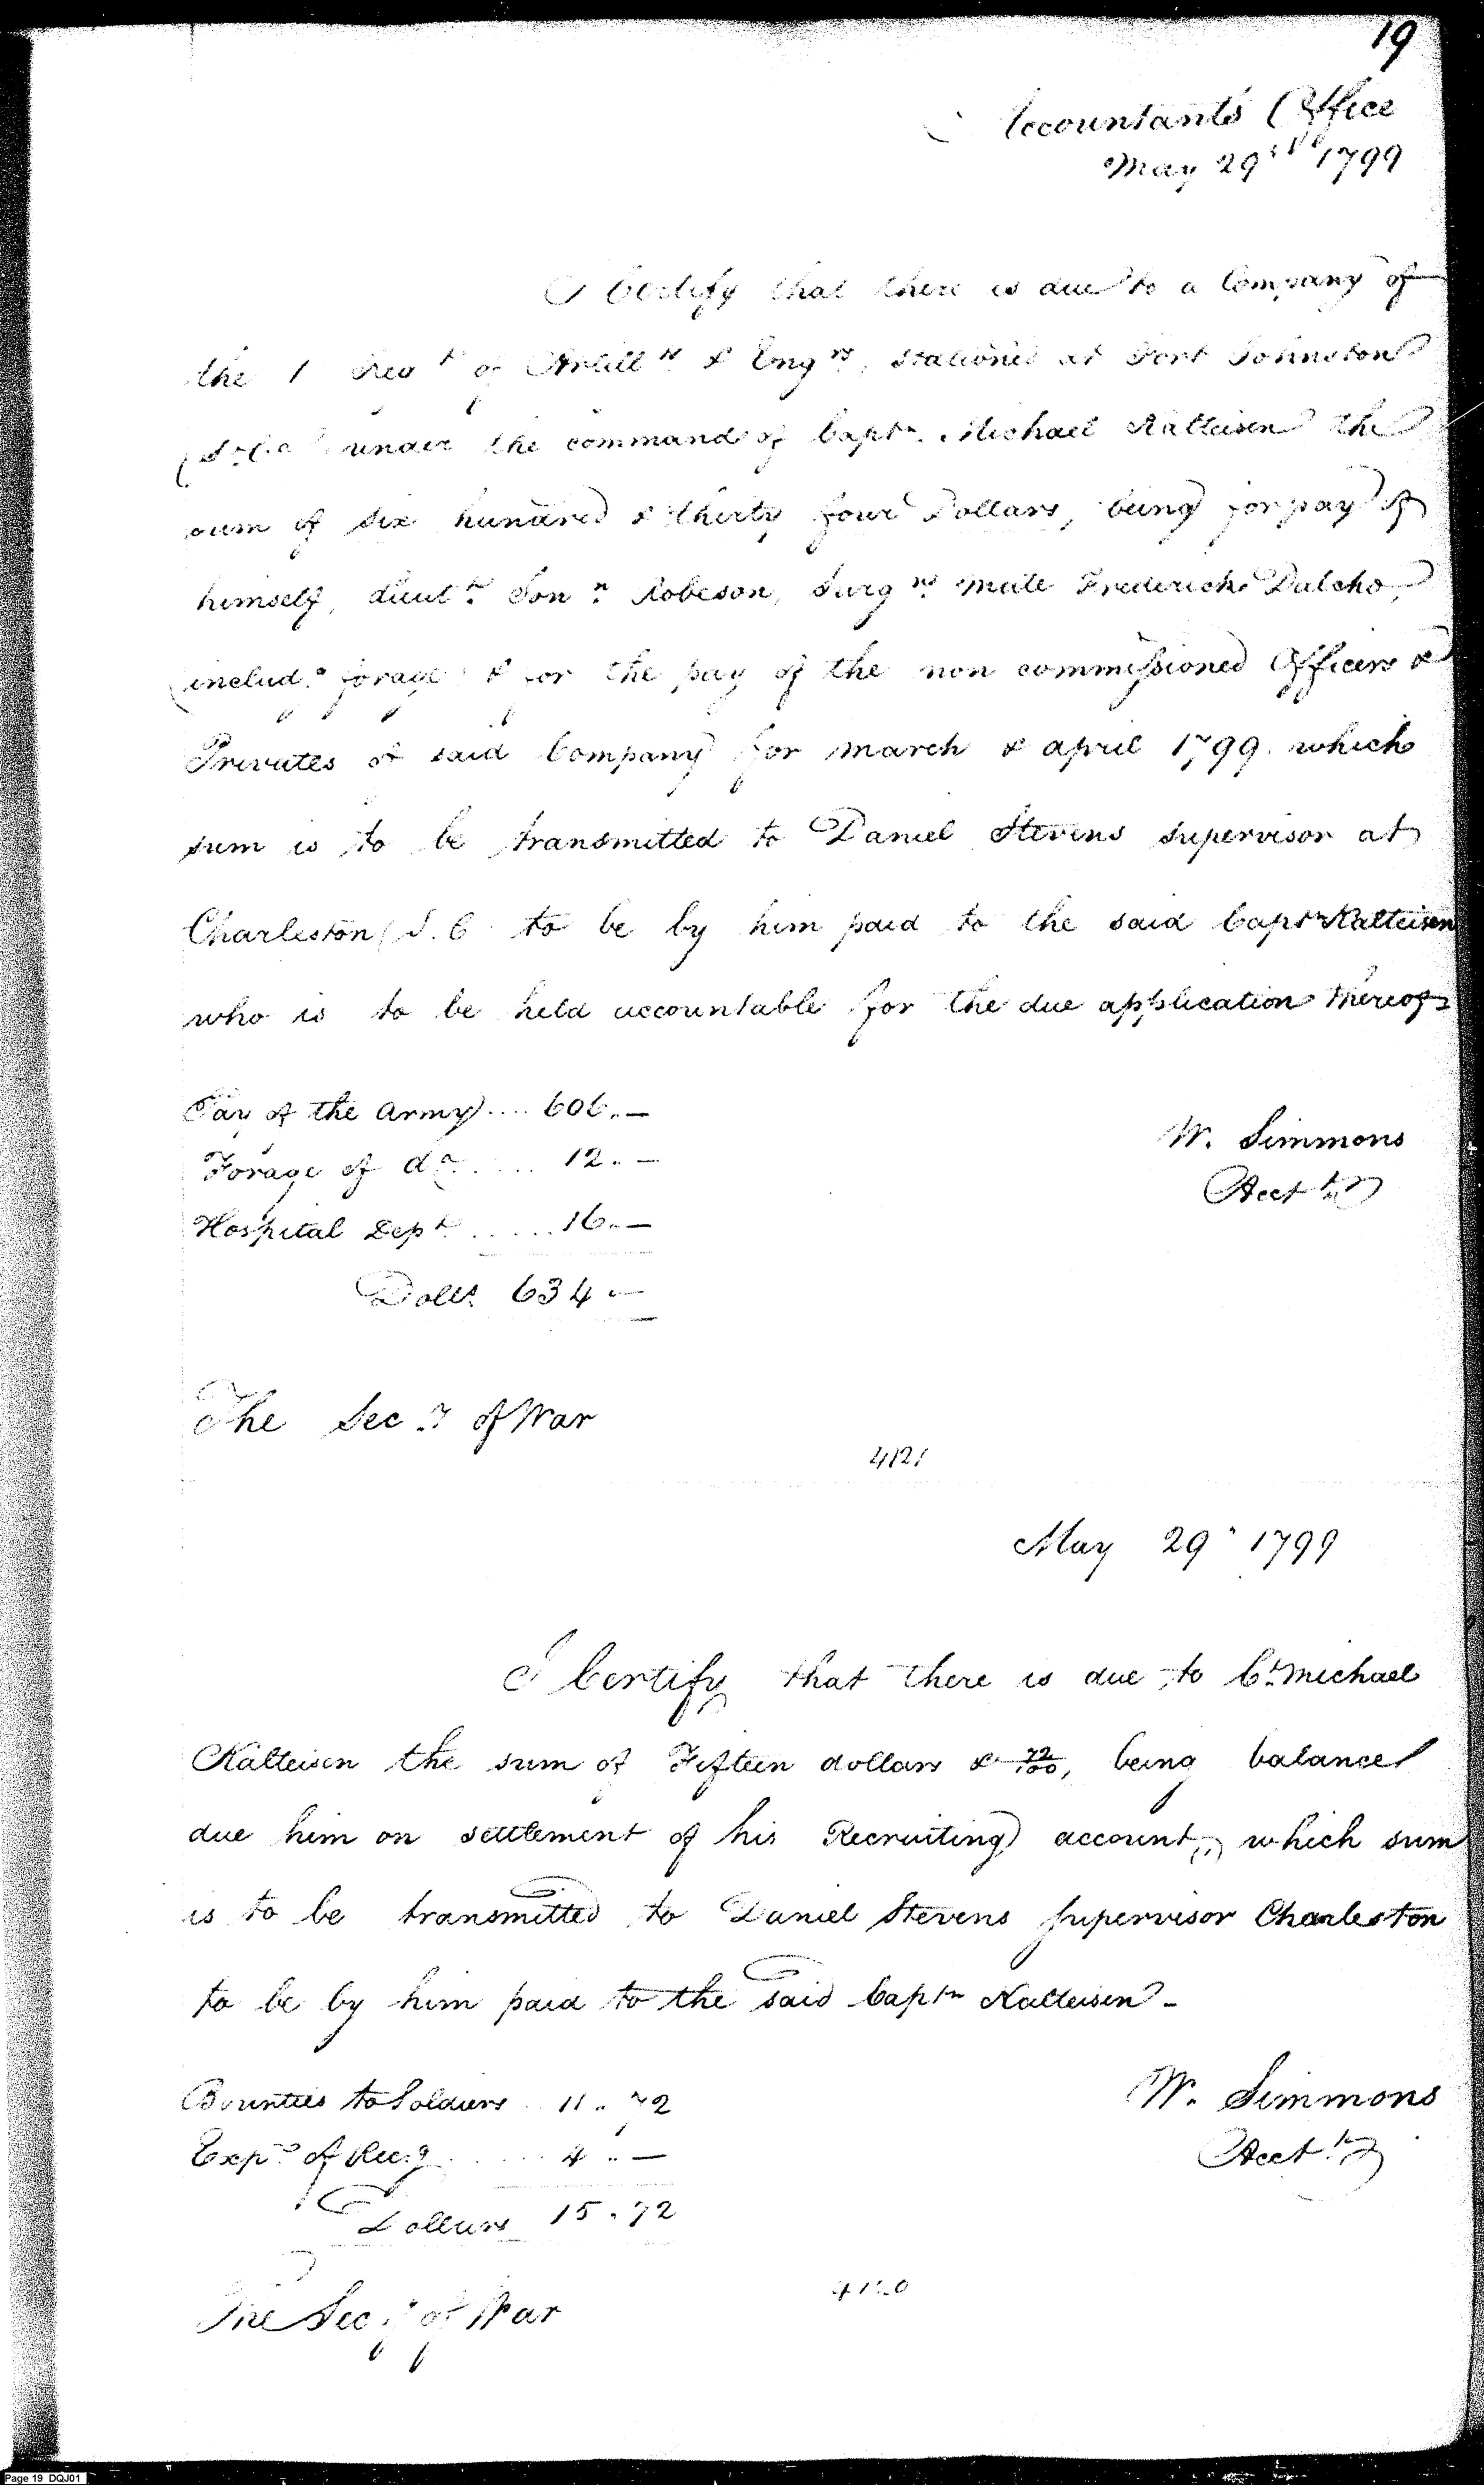 19
Accountants Office
May 29th 1799
I Certify that there is due to a Company of
the 1 Regt of Artills & Engrs, stationed at Fort Johnston
(So Ca) under the command of Captn. Michael Kalteisen the
sum of six hundred & thirty four Dollars, being for pay of
himself, Lieutt. Jonn. Robeson, Surgns. Mate Frederick Dalcho,
(includg. forage) & for the pay of the non commissioned Officers &
Privates of said Company for march & april 1799. which
sum is to be transmitted to Daniel Stevens supervisor at
Charleston (S. C. to be by him paid to the said Captn Kalteisen
who is to be held accountable for the due application thereof
Pay of the Army .... 606. —
Forage of do. .... 12. —
Hospital Dept ..... 16. —
Dolls. 634 . —
W. Simmons
Acctt.
The Secy. of War
4121
May 29. 1799
I Certify that there is due to Ct. Michael
Kalteisen the sum of Fifteen dollars & 72/100, being balance
due him on settlement of his Recruiting account, which sum
is to be transmitted to Daniel Stevens Supervisor Charleston
to be by him paid to the said Captn Kalteisen -
Bounties to Soldiers .. 11 . 72
Exps of Recg ..... 4 .. —
Dollars 15 . 72
W. Simmons
Acctt.
The Secy. of War
4120
Page 19 DQJ01